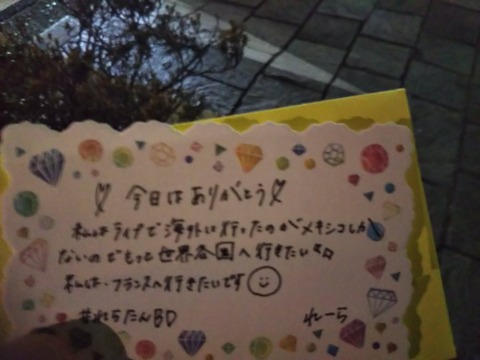 今日はありがとう
私はライブで海外に行ったのがメキシコしか
ないのでもっと世界各国へ行きたい
私は、フランスへ行きたいです
#れらたんBD れーら